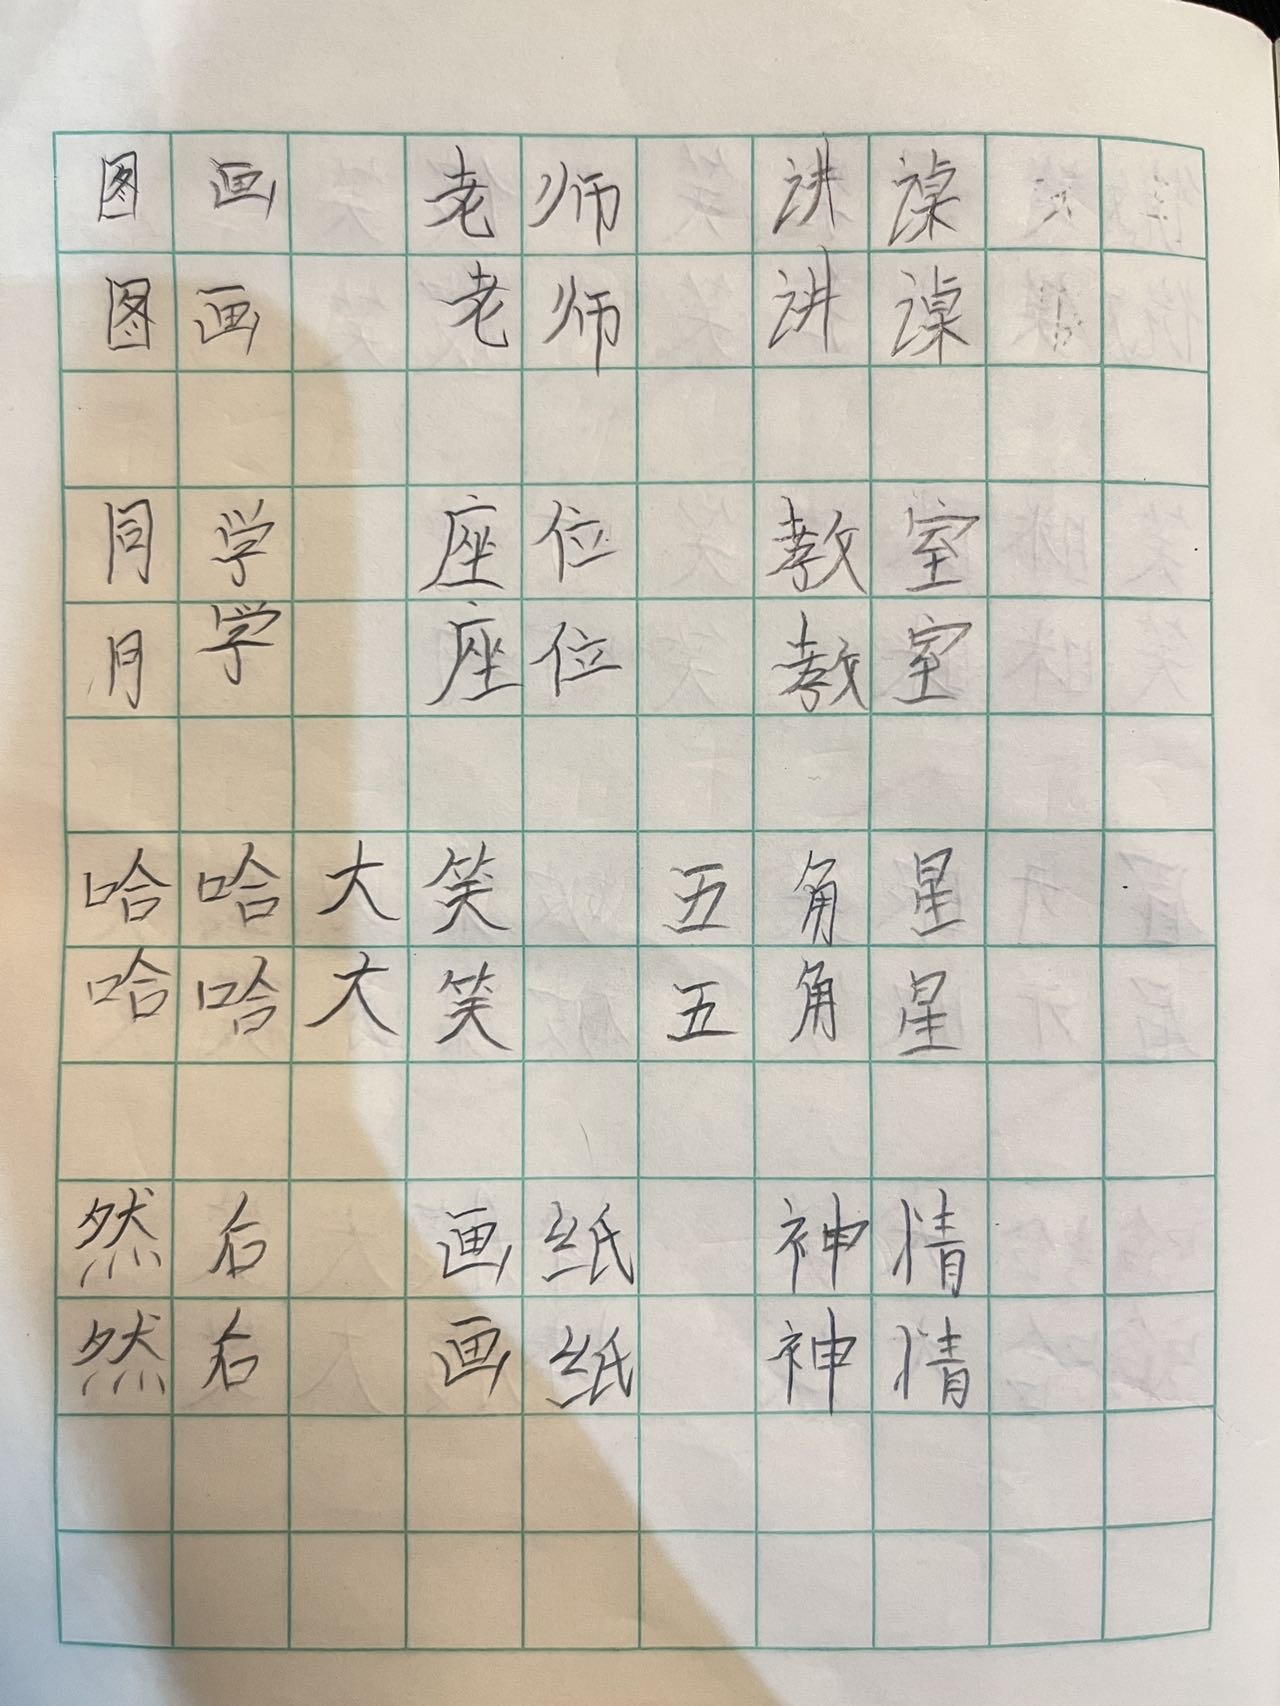 图画 老师 讲课
图画 老师 讲课
同学 座位 教室
同学 座位 教室
哈哈大笑 五角星
哈哈大笑 五角星
然后 画纸 神情
然后 画纸 神情